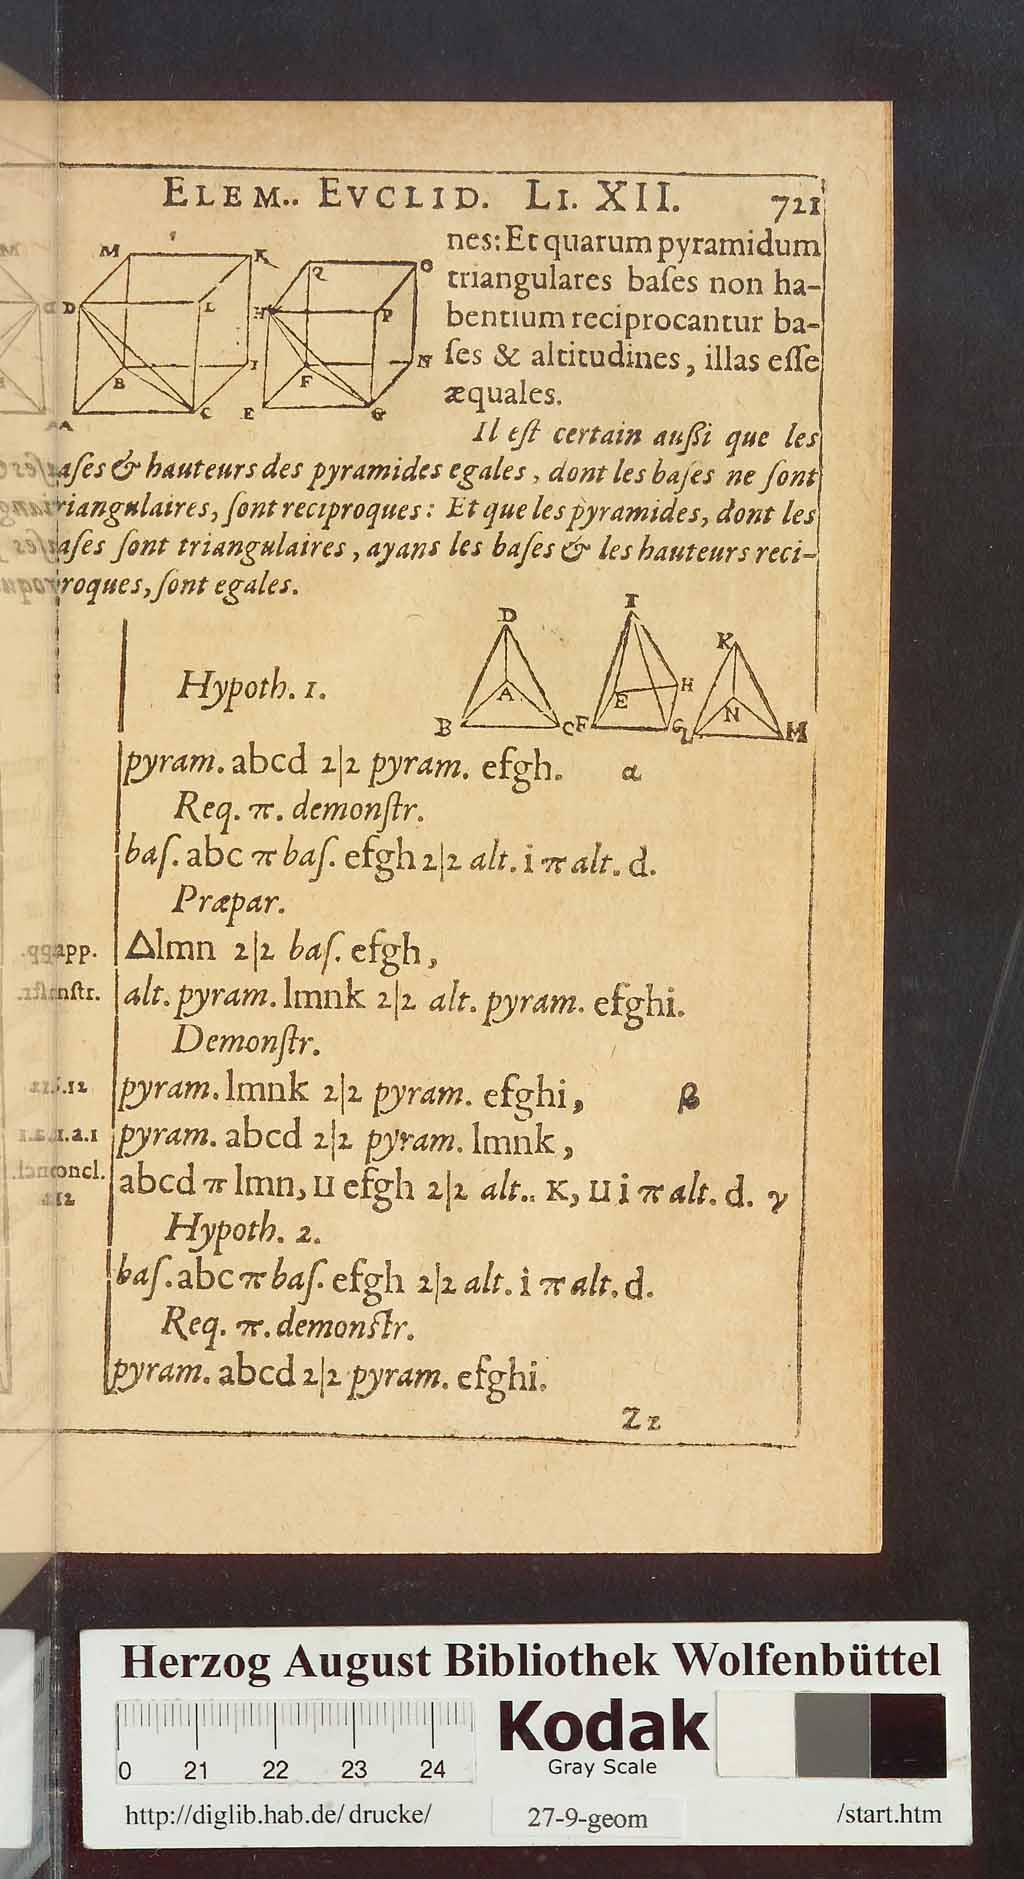 ELEM.. EVCLID. LI. XII. 721
nes: Et quarum pyramidum
triangulares baſes non ha-
bentium reciprocantur ba-
ſes & altitudines, illas eſſe
æquales.
M K Q O
D L H P
B I F N
A C E G
Il eſt certain auſſi que les
aſes & hauteurs des pyramides egales, dont les baſes ne ſont
riangulaires, ſont reciproques: Et que les pyramides, dont les
aſes ſont triangulaires, ayans les baſes & les hauteurs reci-
roques, ſont egales.
D I K
A E H N
B C F G L M
Hypoth. 1.
pyram. abcd 2|2 pyram. efgh. α
Req. π. demonſtr.
baſ. abc π baſ. efgh 2|2 alt. i π alt. d.
Præpar.
app. Δlmn 2|2 baſ. efgh,
nſtr. alt. pyram. lmnk 2|2 alt. pyram. efghi.
Demonſtr.
.12 pyram. lmnk 2|2 pyram. efghi, β
1.a.1 pyram. abcd 2|2 pyram. lmnk,
concl. abcd π lmn, u efgh 2|2 alt.. K, u i π alt. d. γ
Hypoth. 2.
baſ. abc π baſ. efgh 2|2 alt. i π alt. d.
Req. π. demonſtr.
pyram. abcd 2|2 pyram. efghi.
Zz
Herzog August Bibliothek Wolfenbüttel
0 21 22 23 24
Kodak
Gray Scale
http://diglib.hab.de/ drucke/ 27-9-geom /start.htm